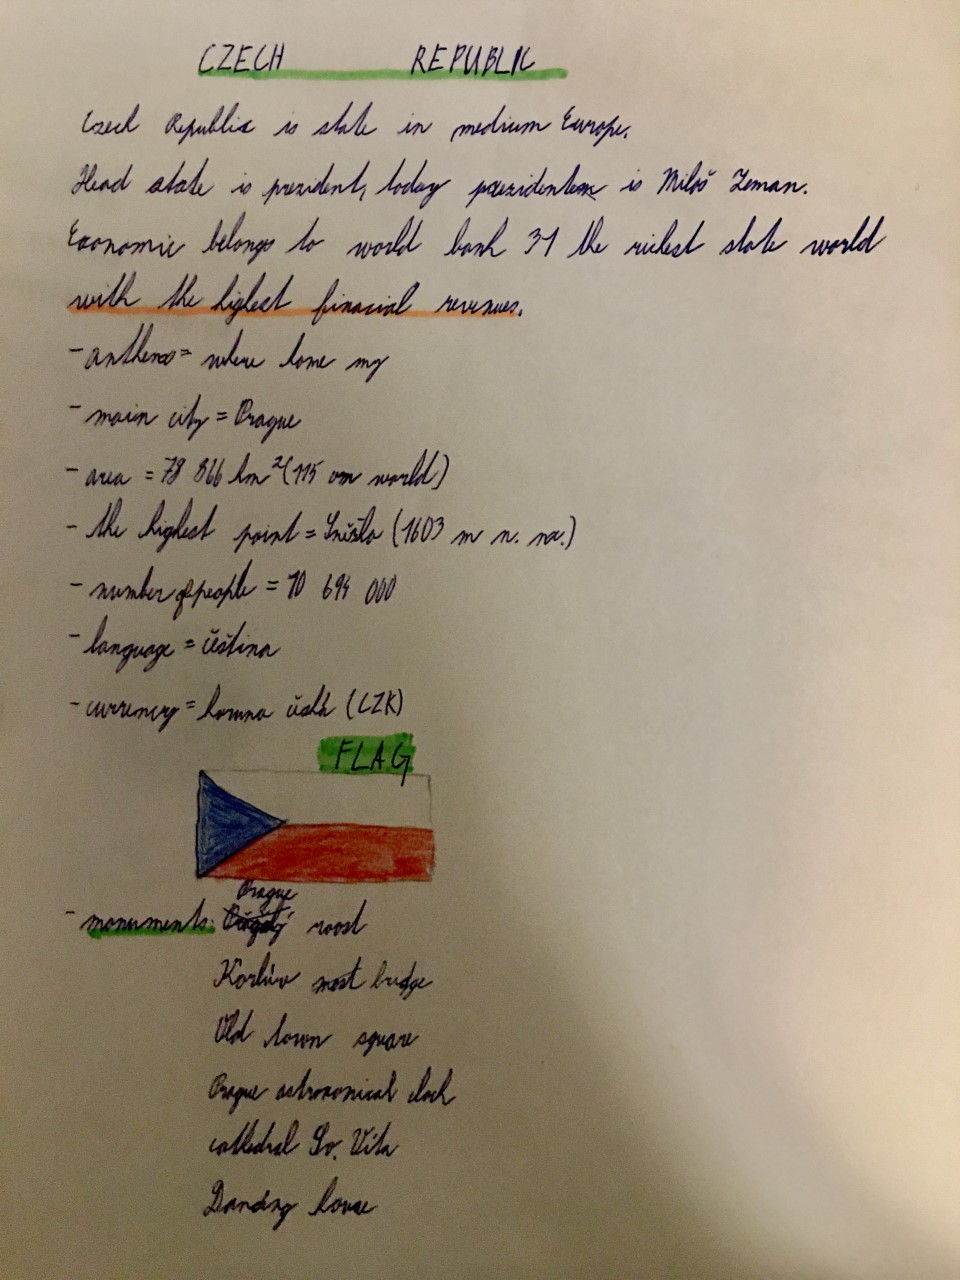 CZECH REPUBLIC
Czech Republic is state in medium Europe.
Head state is prezident, today prezidentem is Miloš Zeman.
Economic belongs to world bank 31 the richest state world
with the highest finacial revenues.
- anthem = where home my
- main city = Prague
- area = 78 866 km² (115 on world)
- the highest point = Sněžka (1603 m n. m.)
- number of people = 10 694 000
- language = čeština
- currency = koruna česká (CZK)
FLAG
Prague
- monuments: roost
Karlův most bridge
Old town square
Prague astronomical clock
cathedral Sv. Víta
Dancing house